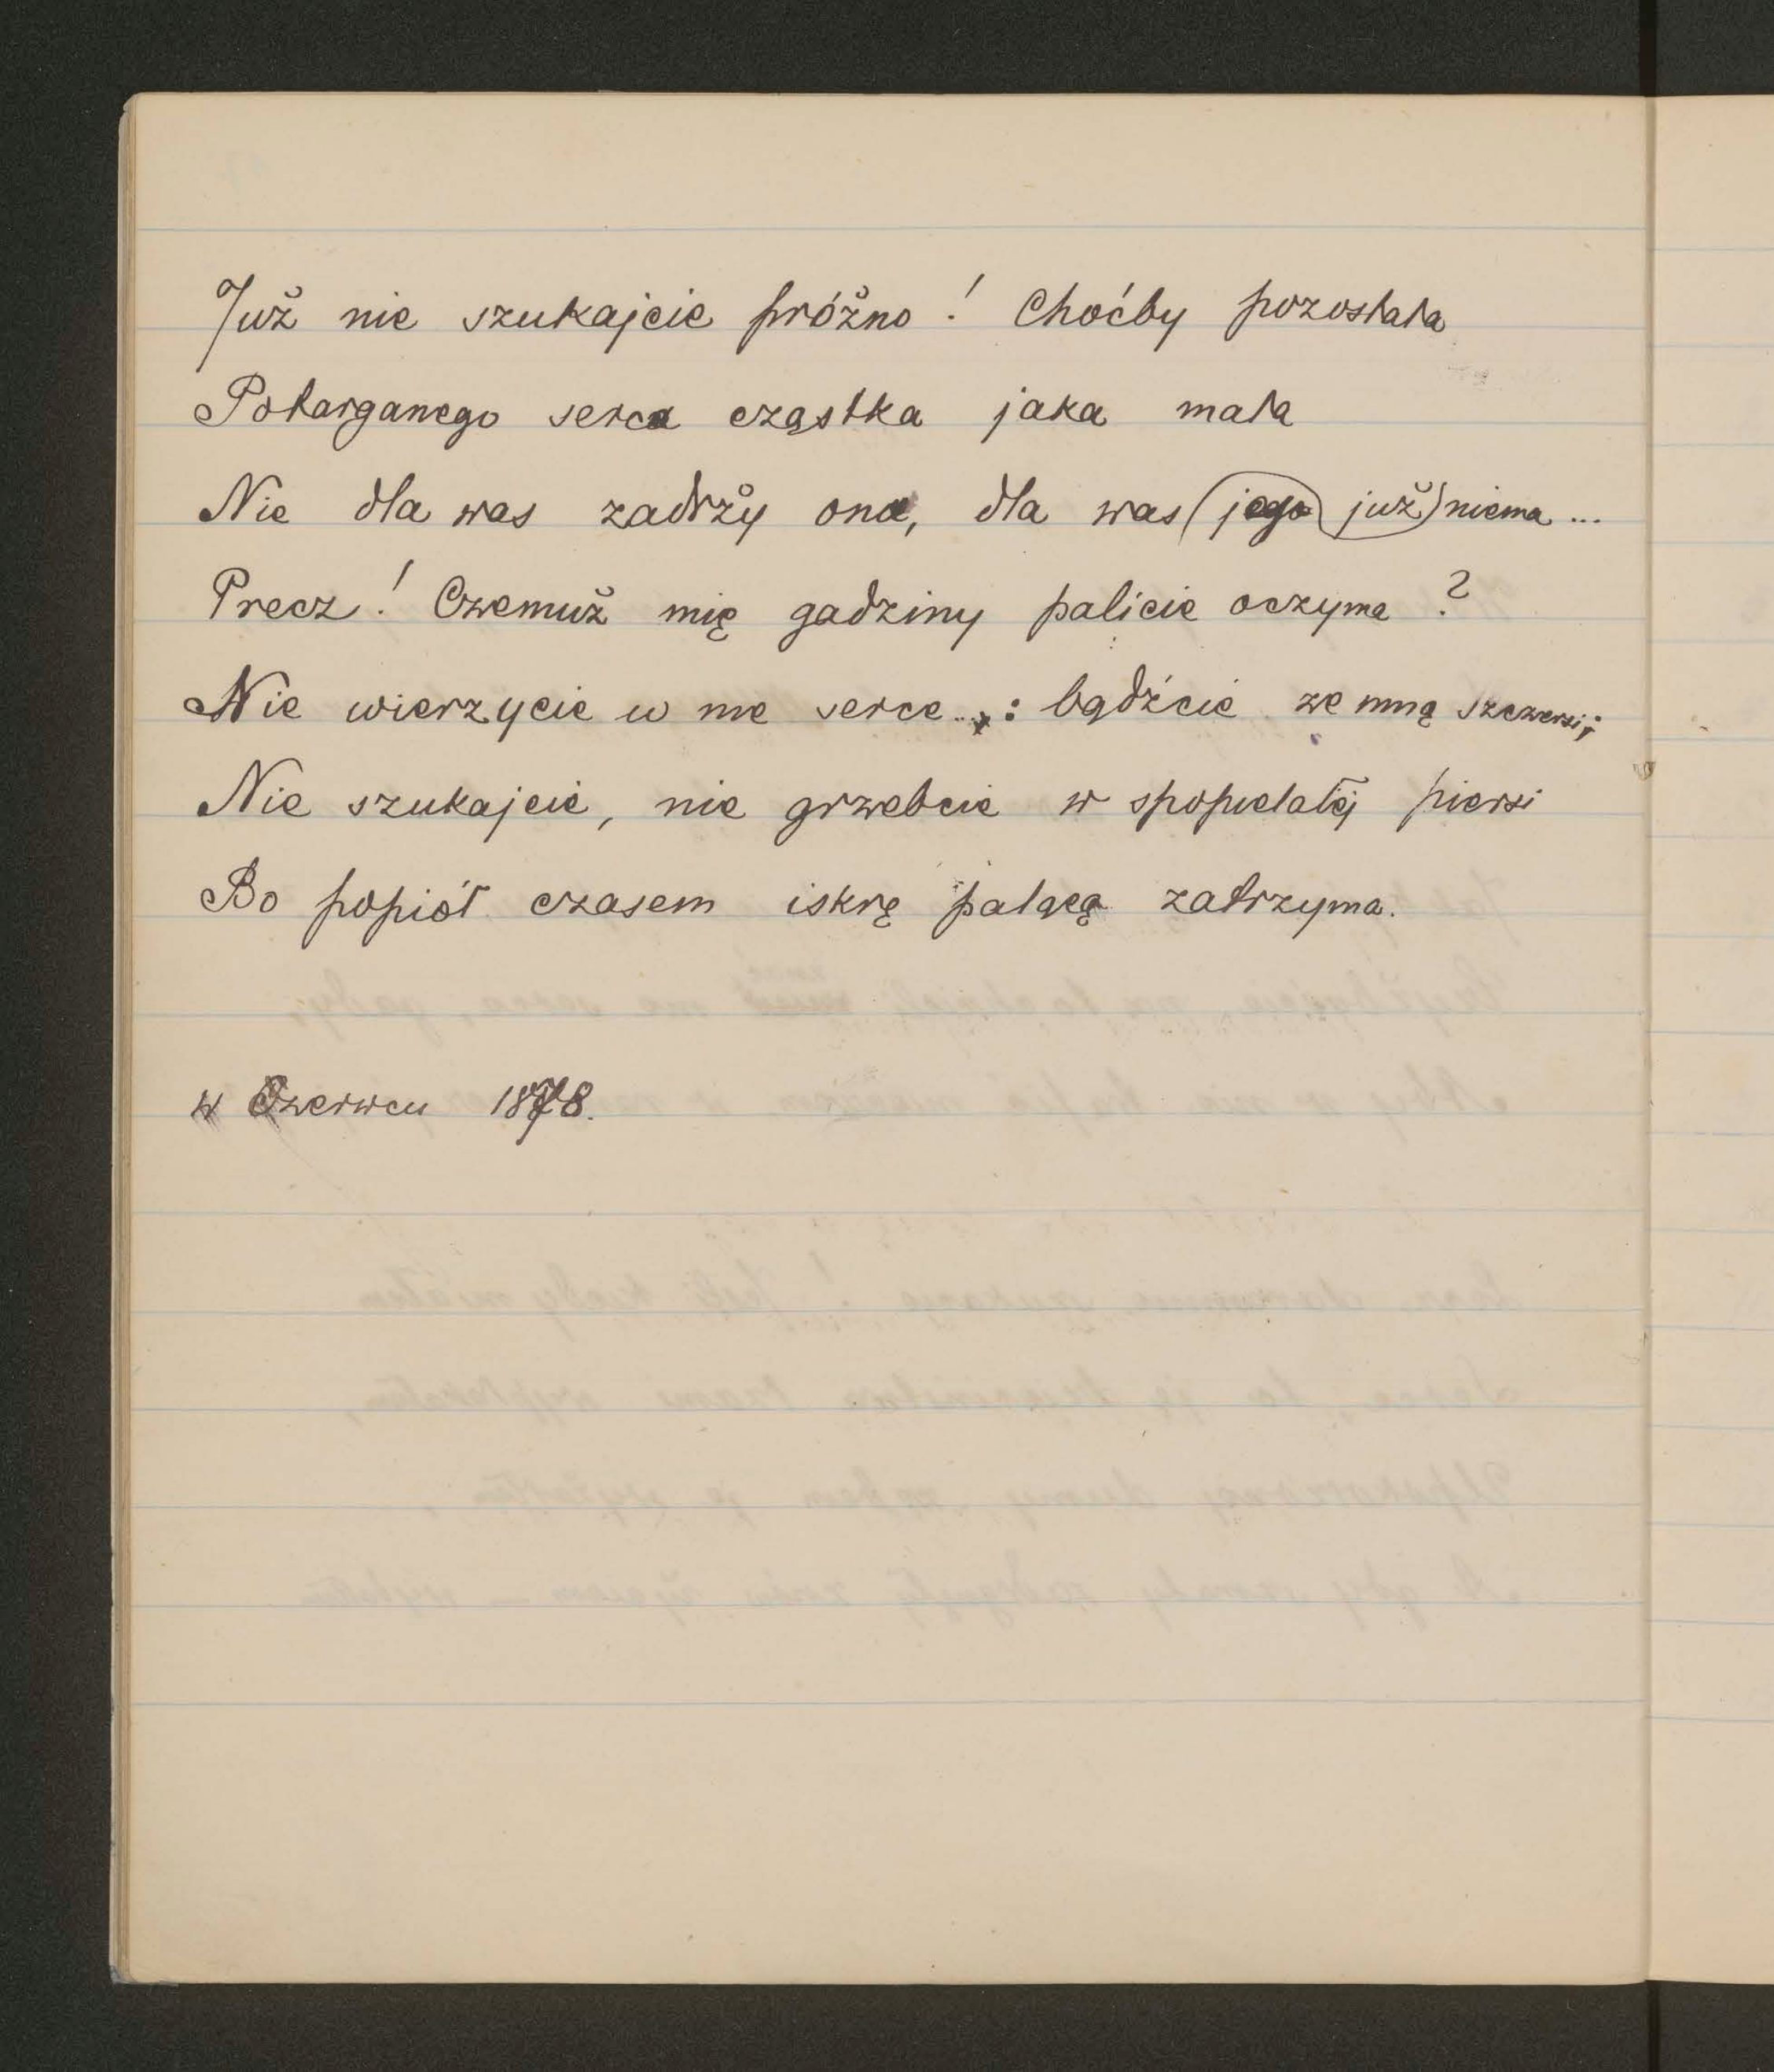 Już nie szukajcie próżno! Choćby pozostała
Potarganego serca cząstka jaka mała
Nie dla was zadrży ona, dla was jego już niema...
Precz! Czemuż mię gadziny palicie oczyma?
Nie wierzycie w me serce..: bądźcie ze mną szczersi;
Nie szukajcie, nie grzebcie w spopielałéj piersi
Bo popiół czasem iskrę palącą zatrzyma.
w Czerwcu 1878.